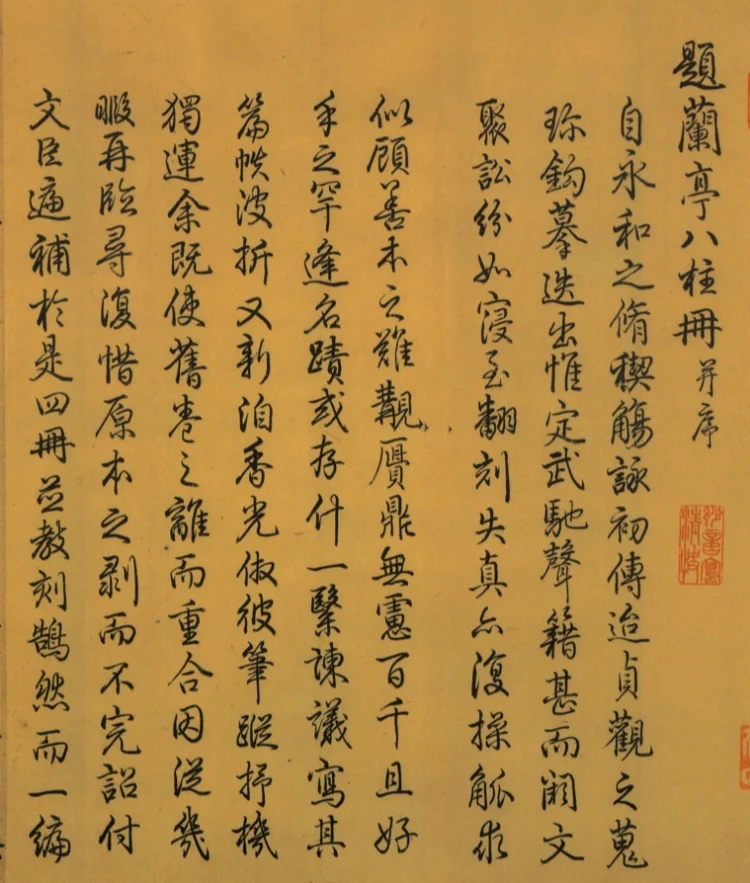 題蘭亭八柱冊 并序
自永和之脩稧觴詠初傳迨貞觀之蒐
珎鈎摹迭出惟定武馳聲籍甚而闕文
聚訟紛如寖至翻刻失真亦復操觚求
似顧善本之難覯贗鼎無慮百千且好
手之罕逢名蹟或存什一繄諫議寫其
篇帙波折又新洎香光倣彼筆蹤抒機
獨運余既使舊卷之離而重合因從幾
暇再臨尋復惜原本之剥而不完詔付
文臣遍補於是四冊並教刻鵠然而一編
妙意寫清快